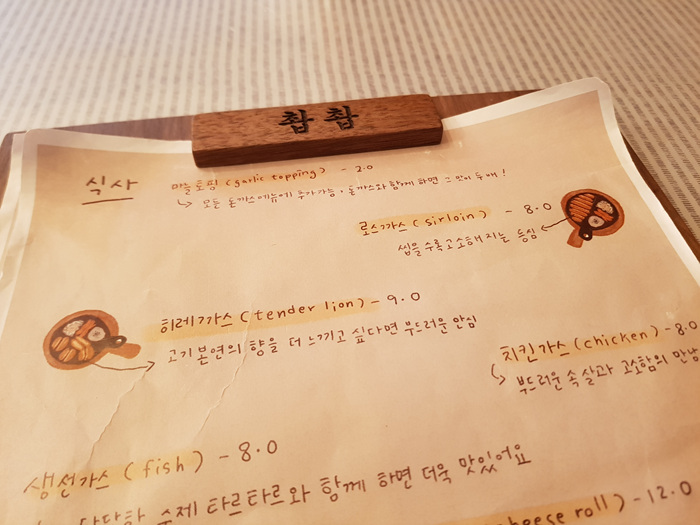 찹찹
식사
마늘토핑 (garlic topping) - 2.0
↳ 모든 돈까스메뉴에 추가가능. 돈까스와 함께 하면 그 맛이 두배!
로스까스 (sirloin) - 8.0
씹을수록 고소해지는 등심
히레까스 (tender lion) - 9.0
고기 본연의 향을 더 느끼고 싶다면 부드러운 안심
치킨까스 (chicken) - 8.0
부드러운 속살과 고소함의 만남
생선까스 (fish) - 8.0
수제 타르타르와 함께 하면 더욱 맛있어요
cheese roll) - 12.0